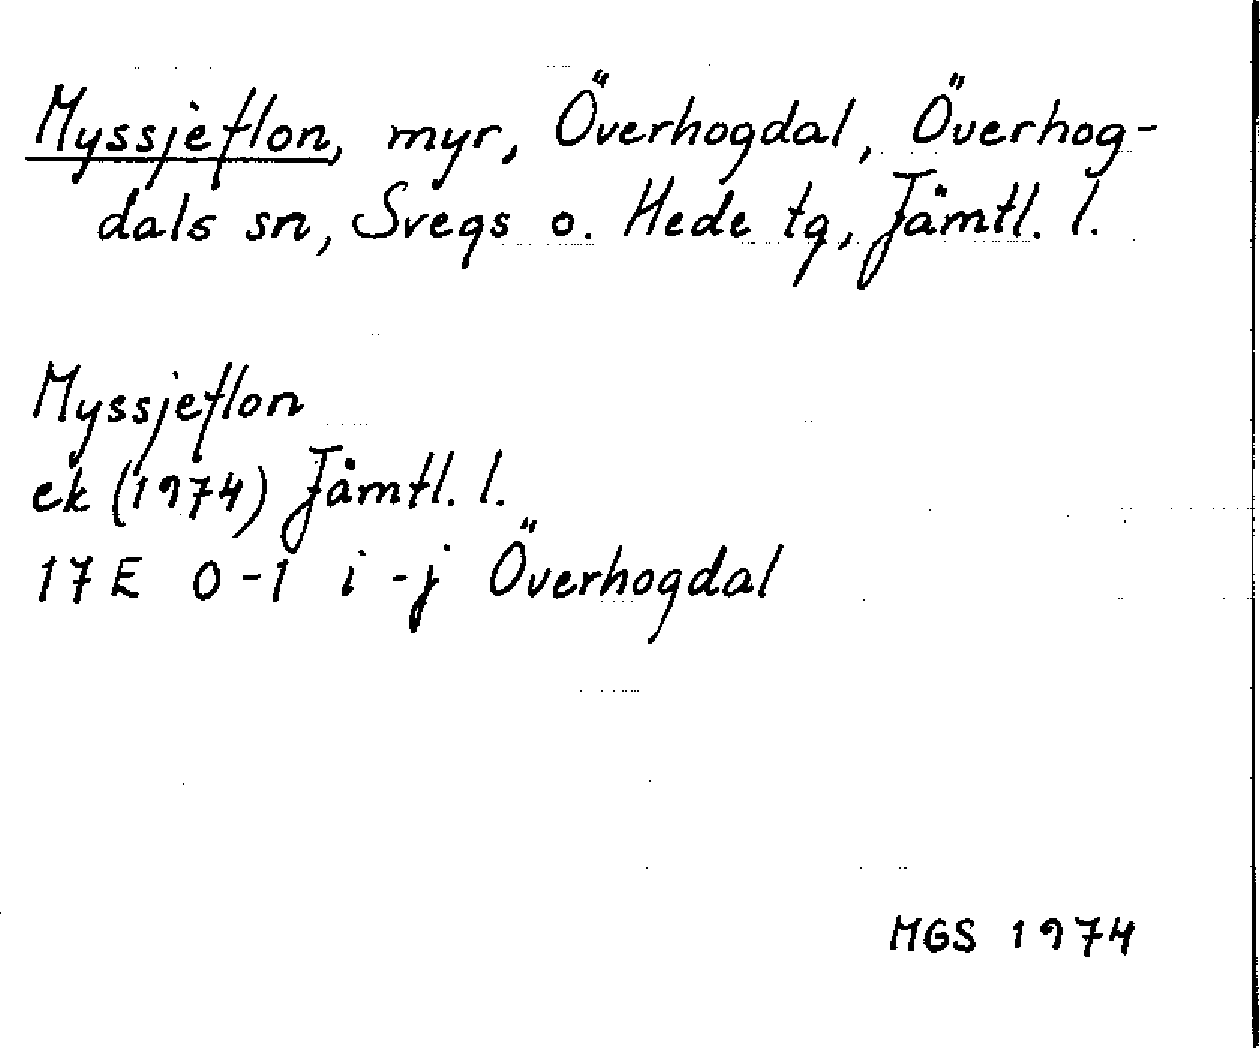 Myssjeflon, myr, Överhogdal, Överhog-
dals sn, Svegs o. Hede tg, Jämtl. l.
Myssjeflon
ek (1974) Jämtl. l.
17E 0-1 i-j Överhogdal
MGS 1974